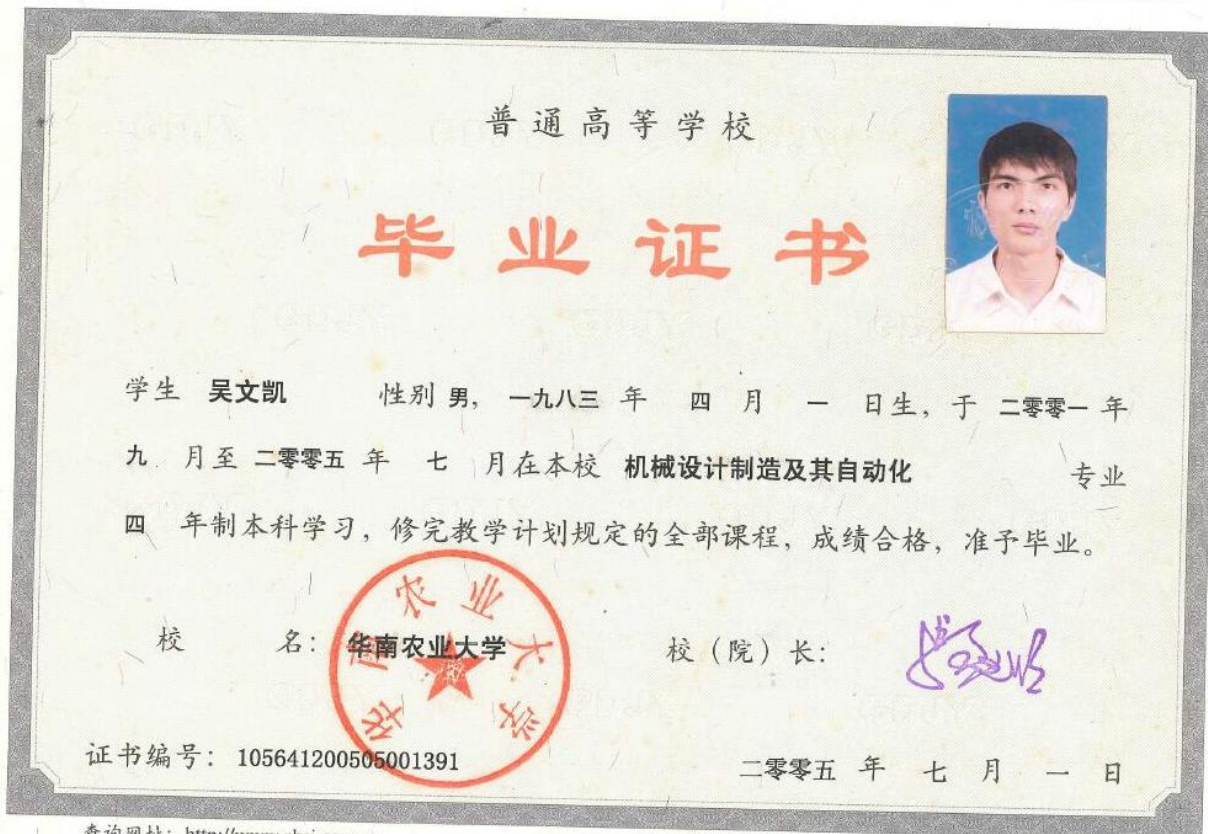 普通高等学校
毕业证书
学生 吴文凯 性别 男, 一九八三 年 四 月 一 日生, 于 二零零一 年
九 月至 二零零五 年 七 月在本校 机械设计制造及其自动化 专业
四 年制本科学习, 修完教学计划规定的全部课程, 成绩合格, 准予毕业。
校 名: 华南农业大学 校(院)长:
华南农业大学
证书编号: 105641200505001391 二零零五 年 七 月 一 日
查询网址: http://www.